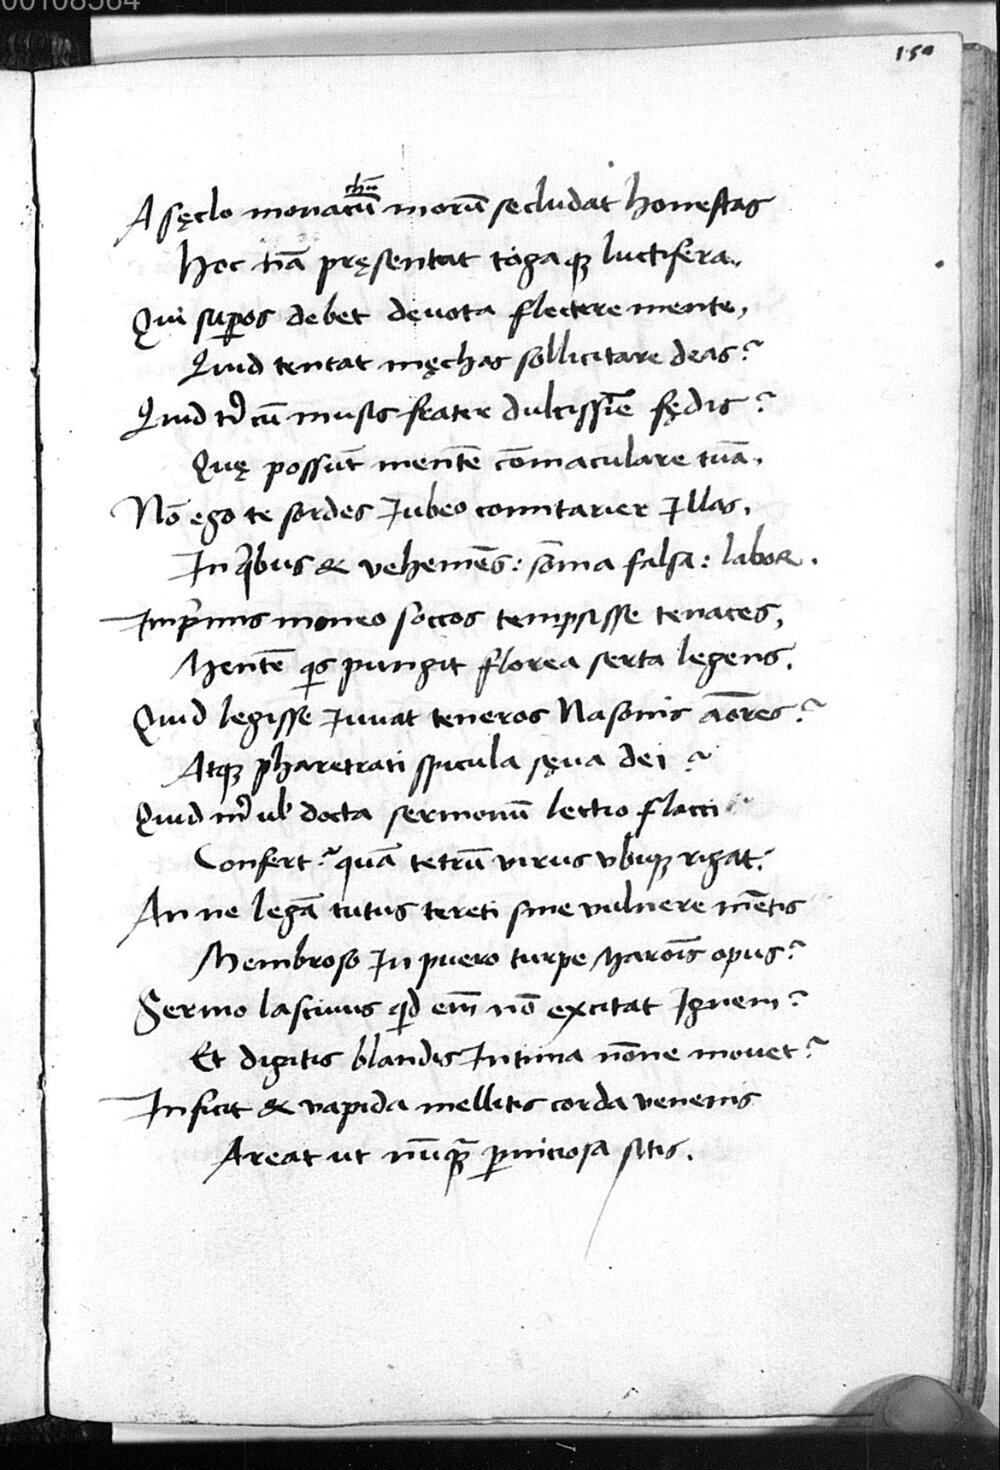 00108564
150
A sęclo monacũ chũ morũ secludat honestas
Hoc nã pręsentat toga qȝ luctifera.
Qui supos debet deuota flectere mente,
Quid tentat męchas sollicitare deas?
Quid t' cũ musis frater dulcissĩe fędis?
Quę possũt mentẽ cõmaculare tuã.
Nõ ego te sordes Iubeo comitarier Illas,
In qbus & vehemẽs: sõma falsa: labor.
Imprimis moneo soccos tempsisse tenaces,
Mentẽ qs pungit florea serta legens.
Quid legisse Iuuat teneros Nasonis aõres?
Atqȝ pharetrati spicula sęua dei?
Quid m' ul' docta sermonũ lectio flacci
Confert? quã tetrũ virus vbiqȝ rigat?
An ne legã tutus tereti sine vulnere mẽtis
Membroso In puero turpe Maroĩs opus?
Sermo lasciuus qd em̃ nõ excitat Ignem?
Et digitis blandis Intima nõne mouet?
Inficit & vapida mellitis corda venenis
Areat ut nũqȝ pniciosa sitis.